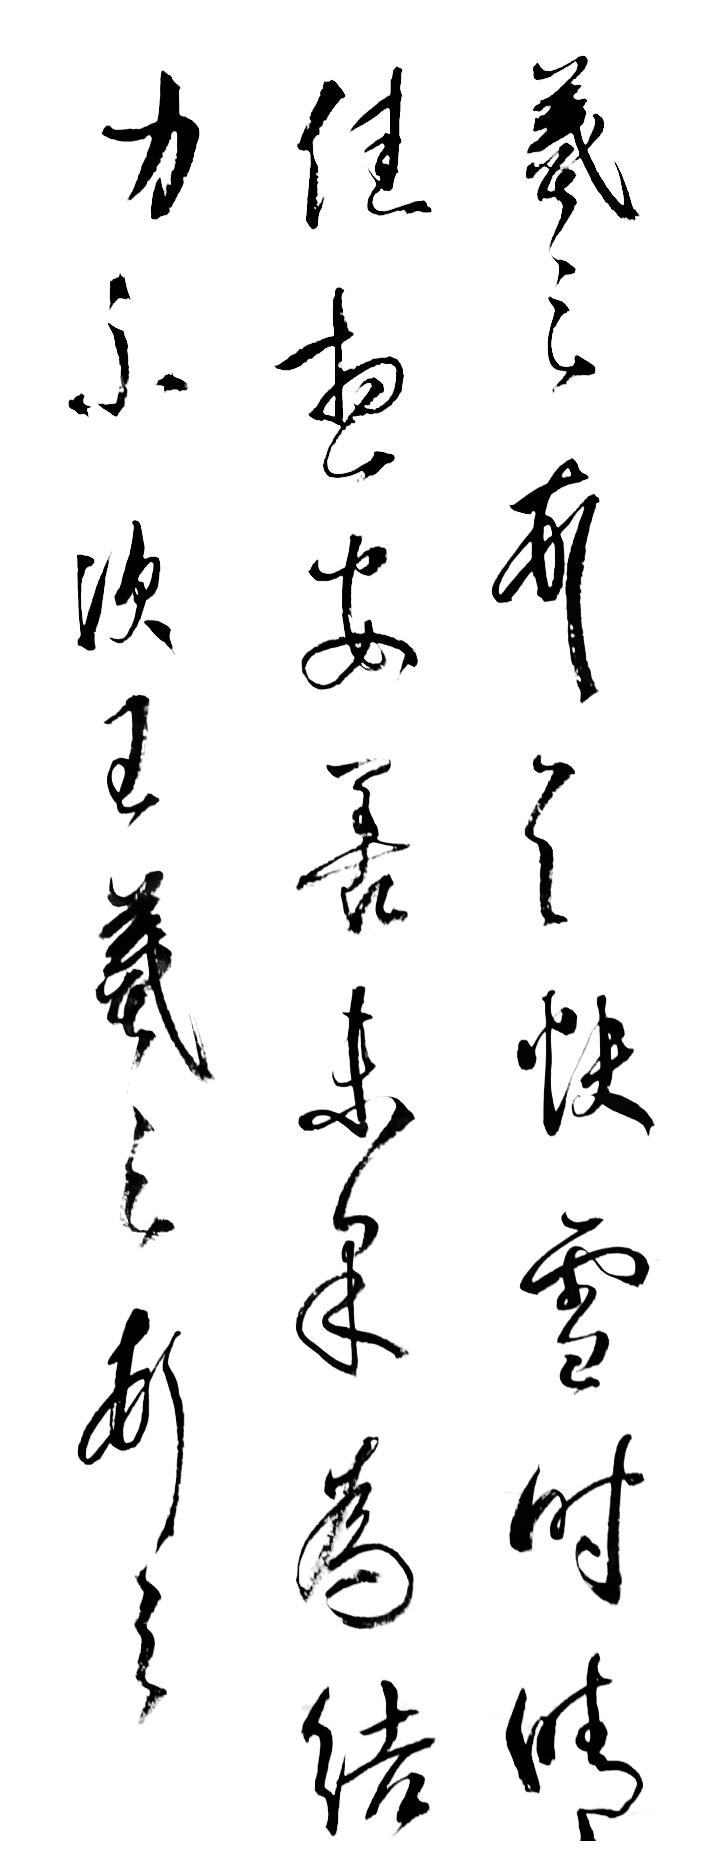 羲之頓首快雪時晴
佳想安善未果為結
力不次王羲之頓首